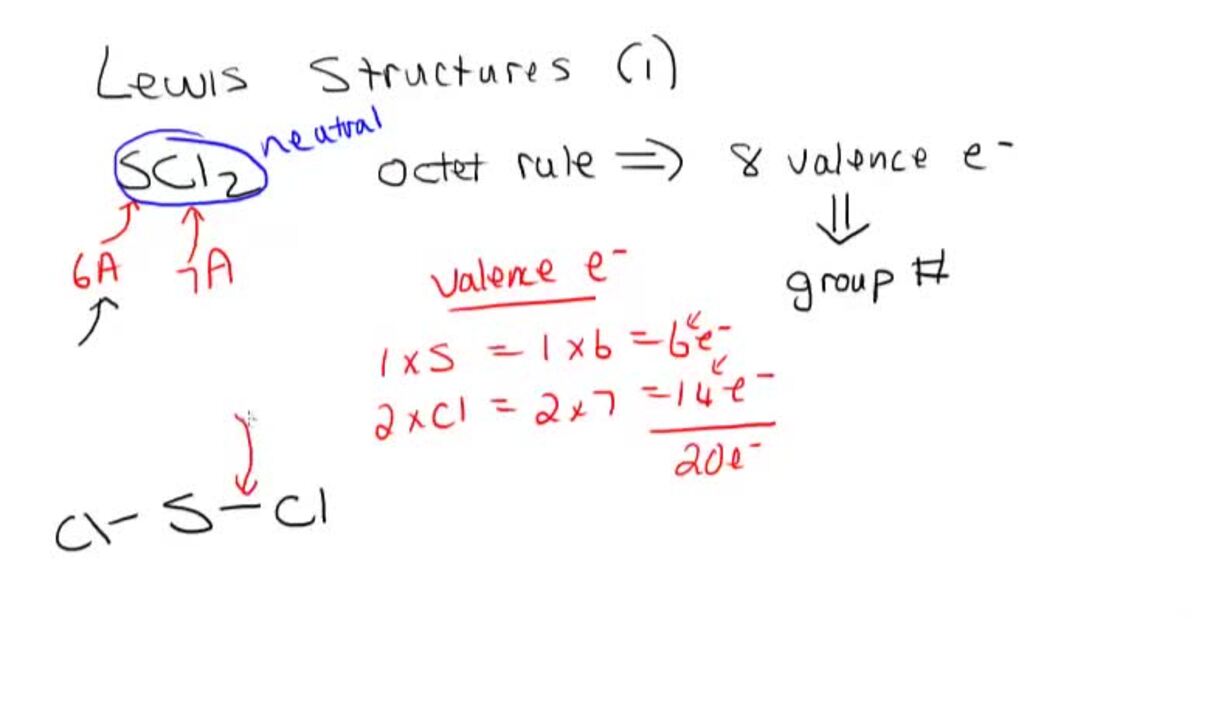 Lewis Structures (1)
SCl2 neutral
octet rule ⇒ 8 valence e-
6A 7A
group #
valence e-
1×S = 1×6 = 6e-
2×Cl = 2×7 = 14e-
20e-
Cl-S-Cl